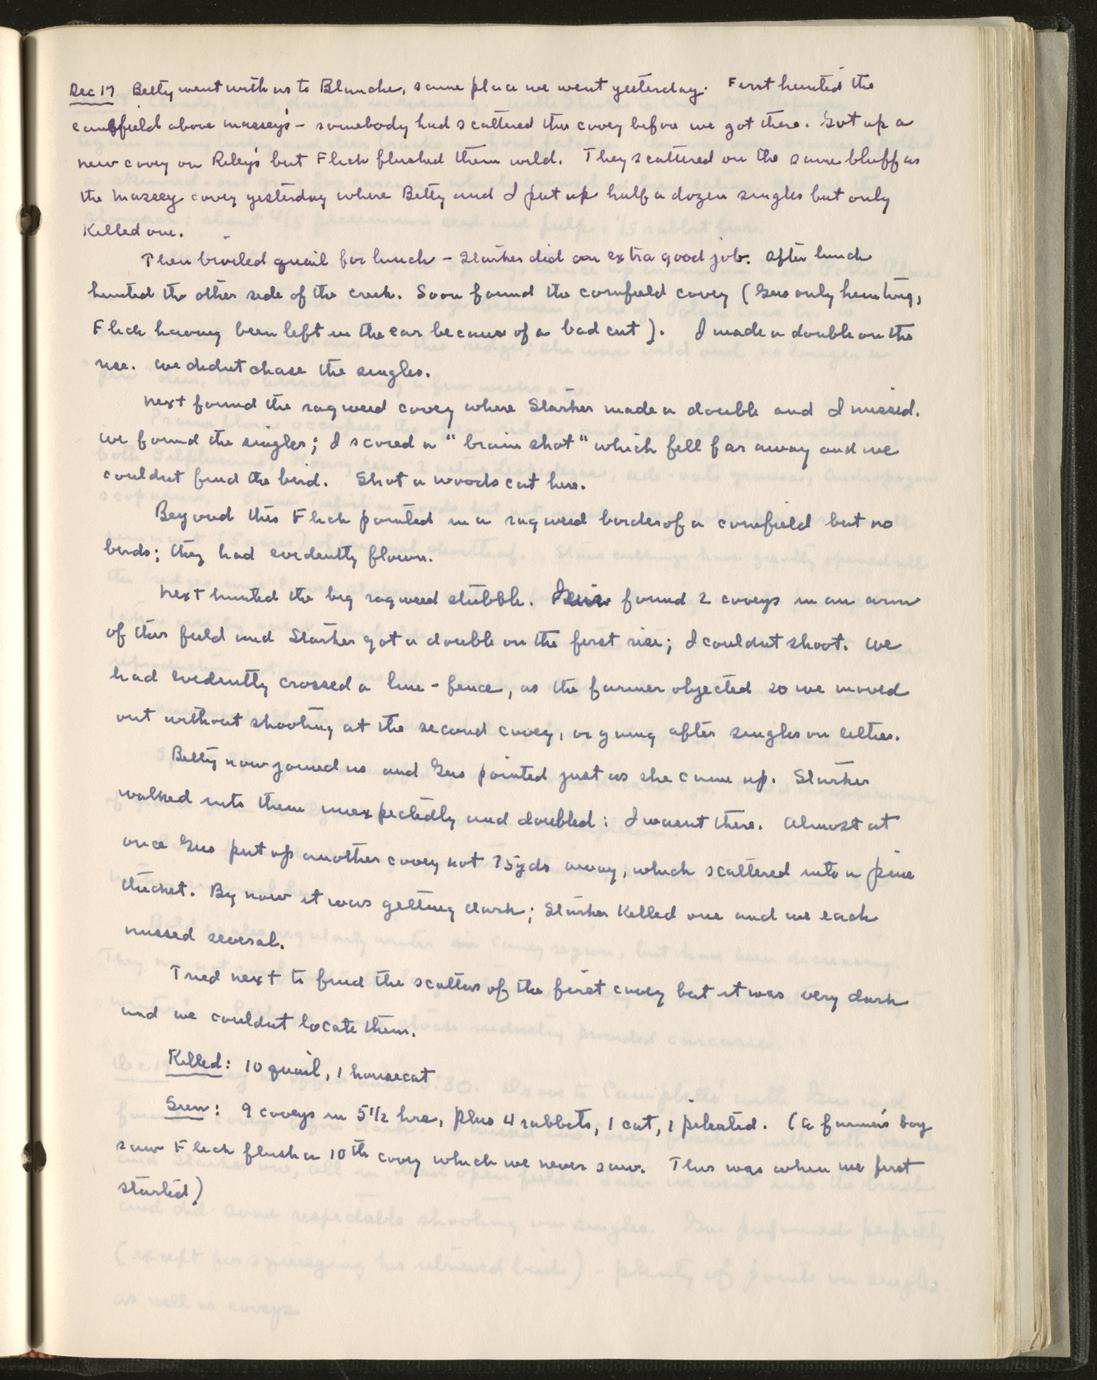 Dec 17 Betty went with us to Blanche, same place we went yesterday. First hunted the
canefield above Massey's - somebody had scattered this covey before we got there. Got up a
new covey on Riley's but Flick flushed them wild. They scattered on the same bluff as
the Massey covey yesterday where Betty and I put up half a dozen singles but only
killed one.
Then broiled quail for lunch - Starker did an extra good job. After lunch
hunted the other side of the creek. Soon found the cornfield covey (Gus only hunting,
Flick having been left in the car because of a bad cut). I made a double on the
rise. We didnt chase the singles.
Next found the ragweed covey where Starker made a double and I missed.
We found the singles; I scored a "brain shot" which fell far away and we
couldnt find the bird. Shot a woods cat here.
Beyond this Flick pointed in a ragweed border of a cornfield but no
birds; they had evidently flown.
Next hunted the big ragweed stubble. found 2 coveys in an arm
of this field and Starker got a double on the first rise; I couldnt shoot. We
had evidently crossed a line-fence, as the farmer objected so we moved
out without shooting at the second covey, or going after singles on either.
Betty now joined us and Gus pointed just as she came up. Starker
walked into them unexpectedly and doubled: I wasnt there. Almost at
once Gus put up another covey not 75yds away, which scattered into a pine
thicket. By now it was getting dark; Starker killed one and we each
missed several.
Tried next to find the scatters of the first covey but it was very dark
and we couldnt locate them.
Killed: 10 quail, 1 housecat
Seen: 9 coveys in 5 1/2 hrs, plus 4 rabbits, 1 cat, 1 pileated. (a farmer's boy
saw Flick flush a 10th covey which we never saw. This was when we first
started)